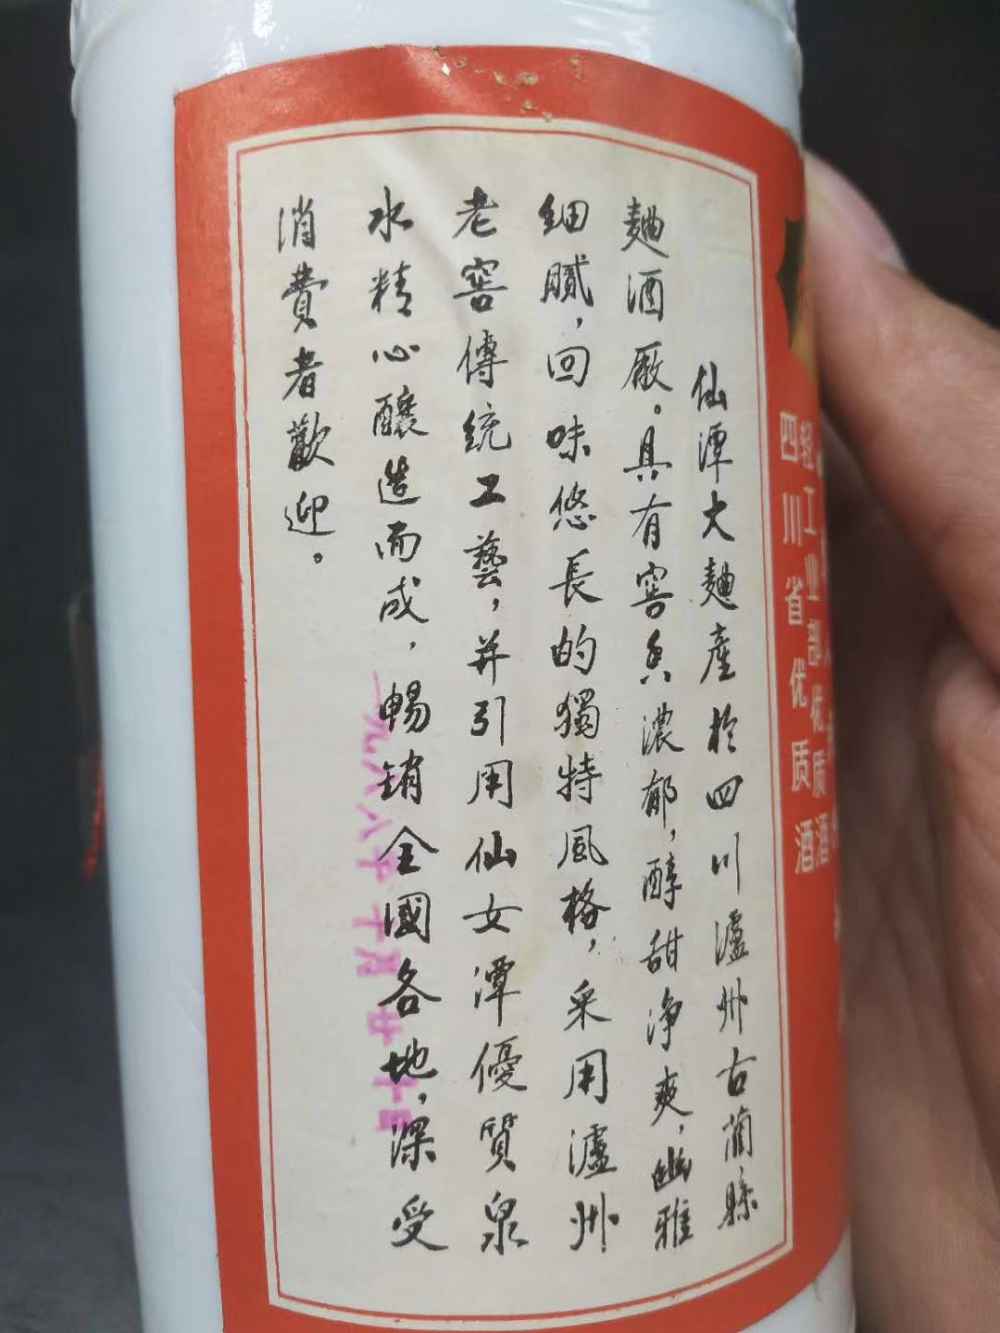 仙潭大麯產於四川瀘州古藺縣
麯酒廠。具有窖香濃郁，醇甜淨爽，幽雅
細膩，回味悠長的獨特風格，采用瀘州
老窖傳統工藝，并引用仙女潭優質泉
水精心釀造而成，暢銷全國各地，深受
消費者歡迎。
轻工业部优质酒
四川省优质酒
一九八八年十月廿十日